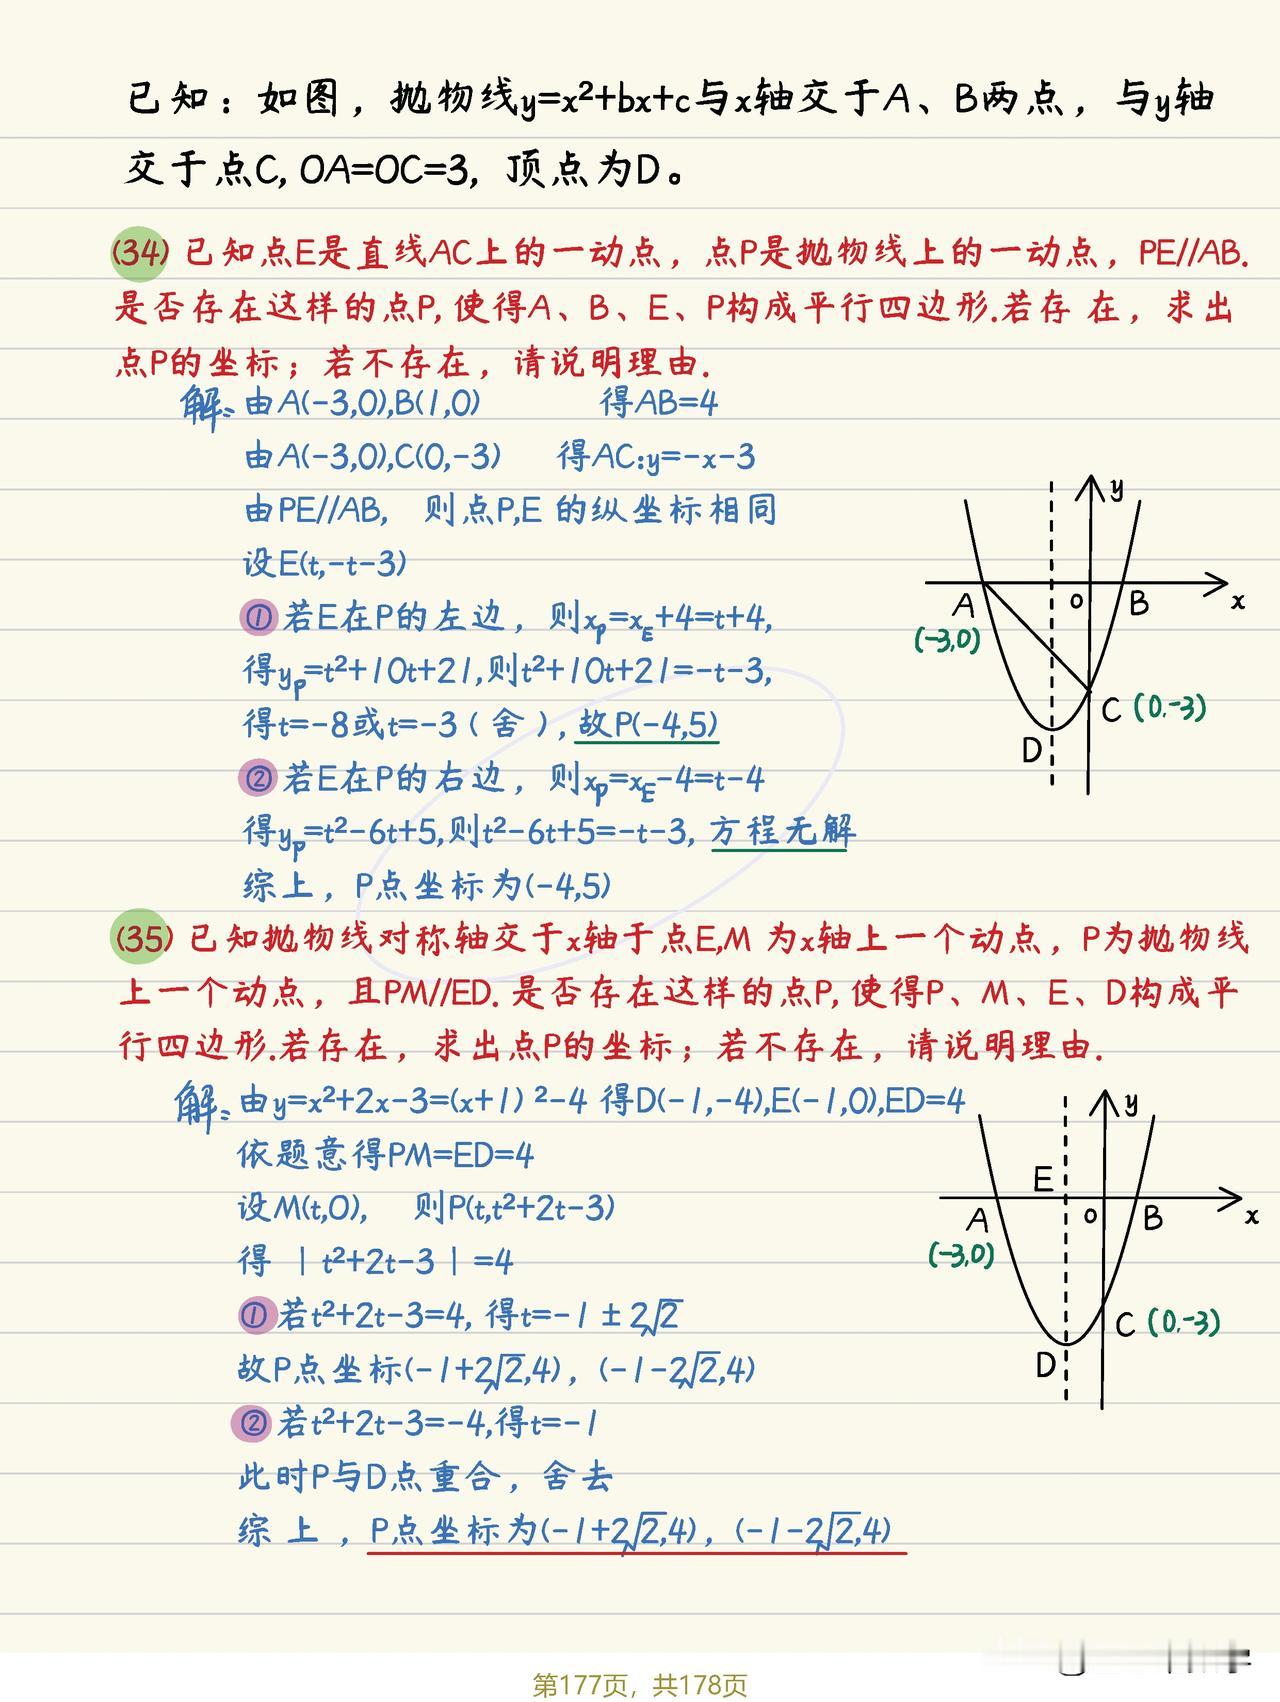 已知：如图，抛物线y=x²+bx+c与x轴交于A、B两点，与y轴
交于点C, OA=OC=3, 顶点为D。
(34) 已知点E是直线AC上的一动点，点P是抛物线上的一动点，PE//AB.
是否存在这样的点P, 使得A、B、E、P构成平行四边形.若存 在，求出
点P的坐标；若不存在，请说明理由.
解: 由A(-3,0),B(1,0) 得AB=4
由A(-3,0),C(0,-3) 得AC:y=-x-3
由PE//AB, 则点P,E 的纵坐标相同
设E(t,-t-3)
①若E在P的左边，则xₚ=x_E+4=t+4,
得yₚ=t²+10t+21,则t²+10t+21=-t-3,
得t=-8或t=-3（舍）, 故P(-4,5)
②若E在P的右边，则xₚ=x_E-4=t-4
得yₚ=t²-6t+5,则t²-6t+5=-t-3, 方程无解
综上，P点坐标为(-4,5)
y
A
O
B
x
(-3,0)
C (0,-3)
D
(35) 已知抛物线对称轴交于x轴于点E,M 为x轴上一个动点，P为抛物线
上一个动点，且PM//ED. 是否存在这样的点P, 使得P、M、E、D构成平
行四边形.若存在，求出点P的坐标；若不存在，请说明理由.
解: 由y=x²+2x-3=(x+1) ²-4 得D(-1,-4),E(-1,0),ED=4
依题意得PM=ED=4
设M(t,0), 则P(t,t²+2t-3)
得 | t²+2t-3 | =4
①若t²+2t-3=4, 得t=-1±2√2
故P点坐标(-1+2√2,4)，(-1-2√2,4)
②若t²+2t-3=-4,得t=-1
此时P与D点重合，舍去
综 上 ，P点坐标为(-1+2√2,4)，(-1-2√2,4)
y
E
A
O
B
x
(-3,0)
C (0,-3)
D
第177页，共178页